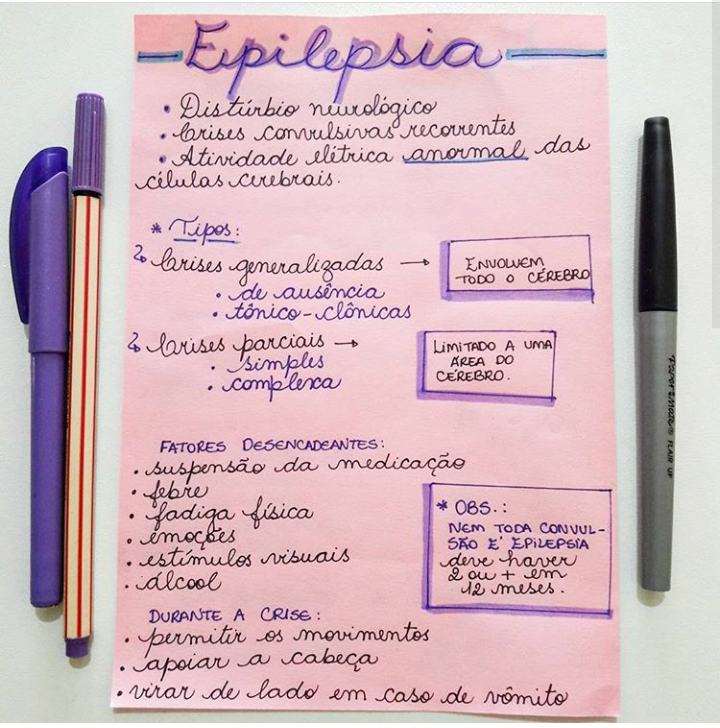 Epilepsia
• Distúrbio neurológico
• Crises convulsivas recorrentes
• Atividade elétrica anormal das
células cerebrais.
* Tipos:
Crises generalizadas →
ENVOLVEM
TODO O CÉREBRO
• de ausência
• tônico-clônicas
Crises parciais →
LIMITADO A UMA
ÁREA DO
CÉREBRO.
• simples
• complexa
FATORES DESENCADEANTES:
• suspensão da medicação
• febre
• fadiga física
• emoções
• estímulos visuais
• álcool
* OBS.:
NEM TODA CONVUL-
SÃO É EPILEPSIA
deve haver
2 ou + em
12 meses.
DURANTE A CRISE:
• permitir os movimentos
• apoiar a cabeça
• virar de lado em caso de vômito
PAPER:MATE® FLAIR UF